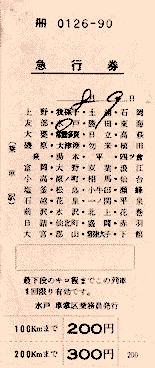 0126-90
急行券
8 9
上野・我孫子・土浦・石岡
友部・水戸・勝田・東海
大甕・常陸多賀・日立・高萩
磯原・大津港・勿来・植田
泉・湯本・平・四ツ倉
富岡・大野・双葉・浪江
小高・原ノ町・相馬・仙台
塩釜・松島・小牛田・瀬峰
石越・花泉・一ノ関・平泉
前沢・水沢・北上・花巻
日詰・仙北町・盛岡
大宮・小山・下館
最下段のキロ程までこの列車
1回限り有効です。
水戸 車掌区乗務員発行
100Kmまで 200円
200Kmまで 300円